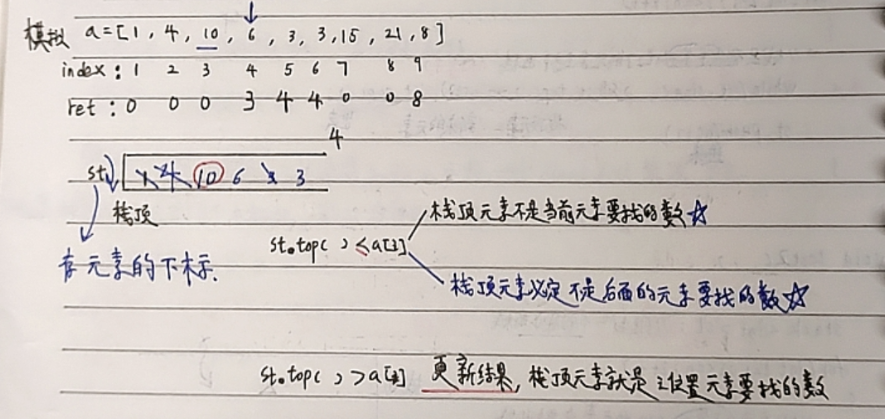 模拟 a=[1, 4, 10, 6, 3, 3, 15, 21, 8]
index: 1 2 3 4 5 6 7 8 9
ret: 0 0 0 3 4 4 0 0 8
4
st 1 4 10 6 3 3
栈顶
存元素的下标.
栈顶元素不是当前元素要找的数☆
st.top() ≤ a[i]
栈顶元素必定不是后面的元素要找的数☆
st.top() > a[i] 更新结果, 栈顶元素就是i位置元素要找的数